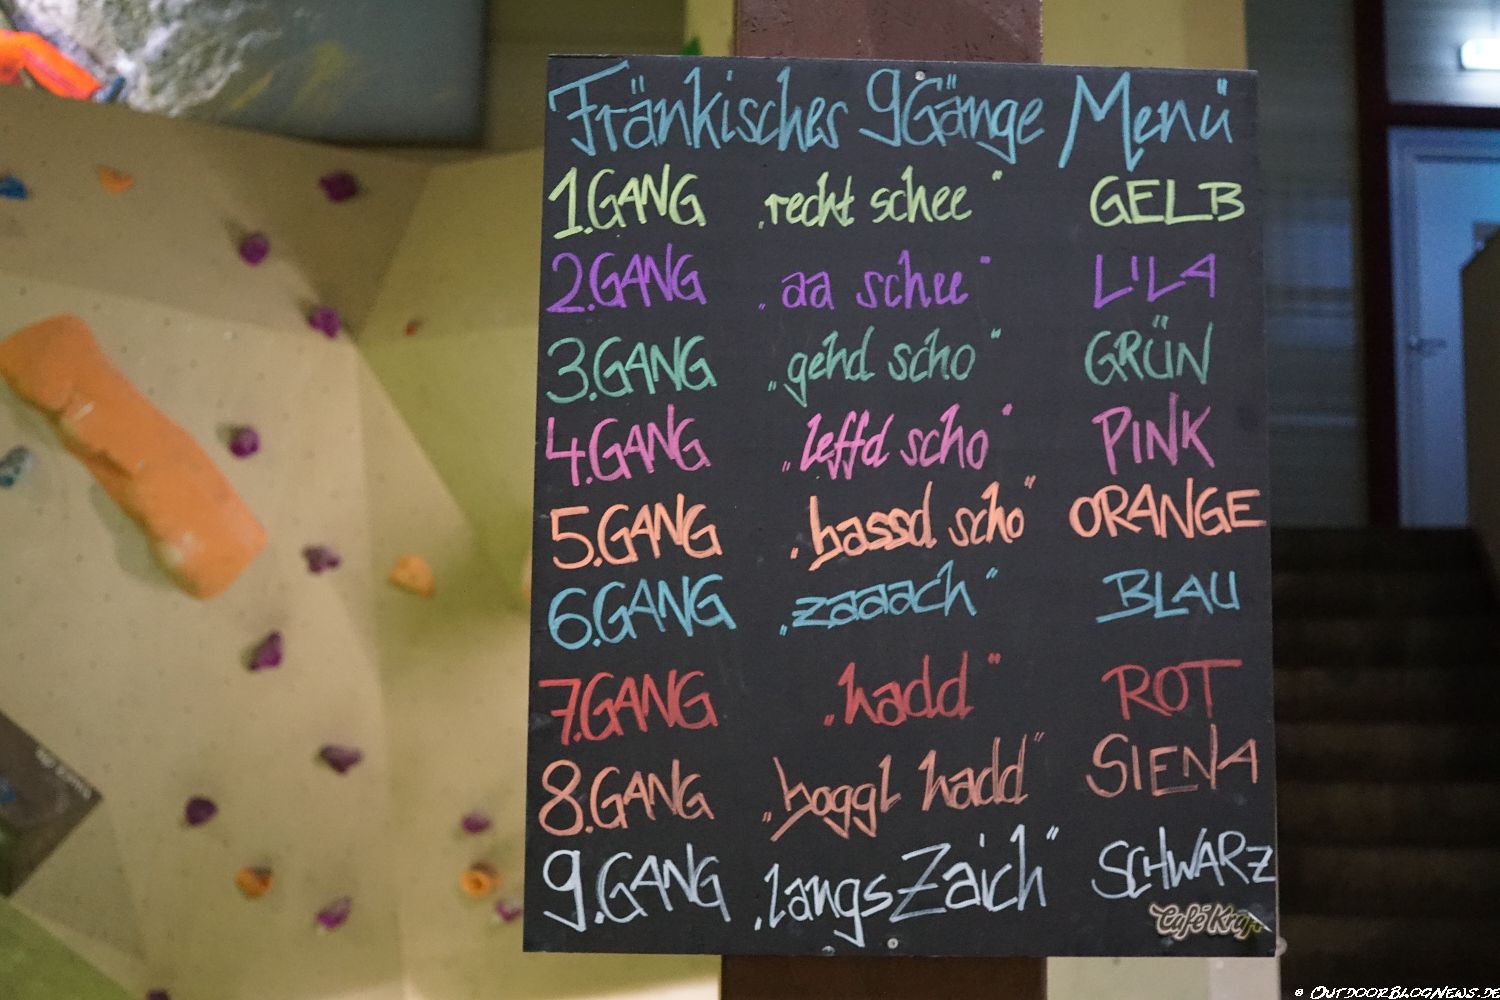 Fränkisches 9 Gänge Menü
1.GANG „recht schee" GELB
2.GANG „aa schee" LILA
3.GANG „gehd scho" GRÜN
4.GANG „leffd scho" PINK
5.GANG „bassd scho" ORANGE
6.GANG „zaaach" BLAU
7.GANG „hadd" ROT
8.GANG „boggl hadd" SIENA
9.GANG „langs Zaich" SCHWARZ
Café Kraft
© OutdoorBlogNews.de